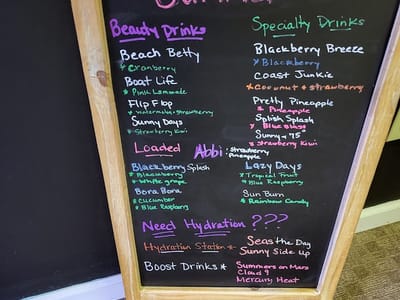 Beauty Drinks
Beach Betty
* Cranberry
Boat Life
* Pink Lemonade
Flip Flop
* Watermelon + Strawberry
Sunny Days
* Strawberry Kiwi
Specialty Drinks
Blackberry Breeze
* Blackberry
Coast Junkie
* Coconut + Strawberry
Pretty Pineapple
* Pineapple
Splish Splash
* Blue Slush
Sunny + 75
* Strawberry Kiwi
Loaded
Blackberry Splash
* Blackberry
* White grape
Bora Bora
* Cucumber
* Blue Raspberry
Abbi * Strawberry
* Pineapple
Lazy Days
* Tropical Fruit
* Blue Raspberry
Sun Burn
* Rainbow Candy
Need Hydration???
Hydration Station *
Seas the Day
Sunny Side Up
Boost Drinks *
Summers on Mars
Cloud 9
Mercury Heat